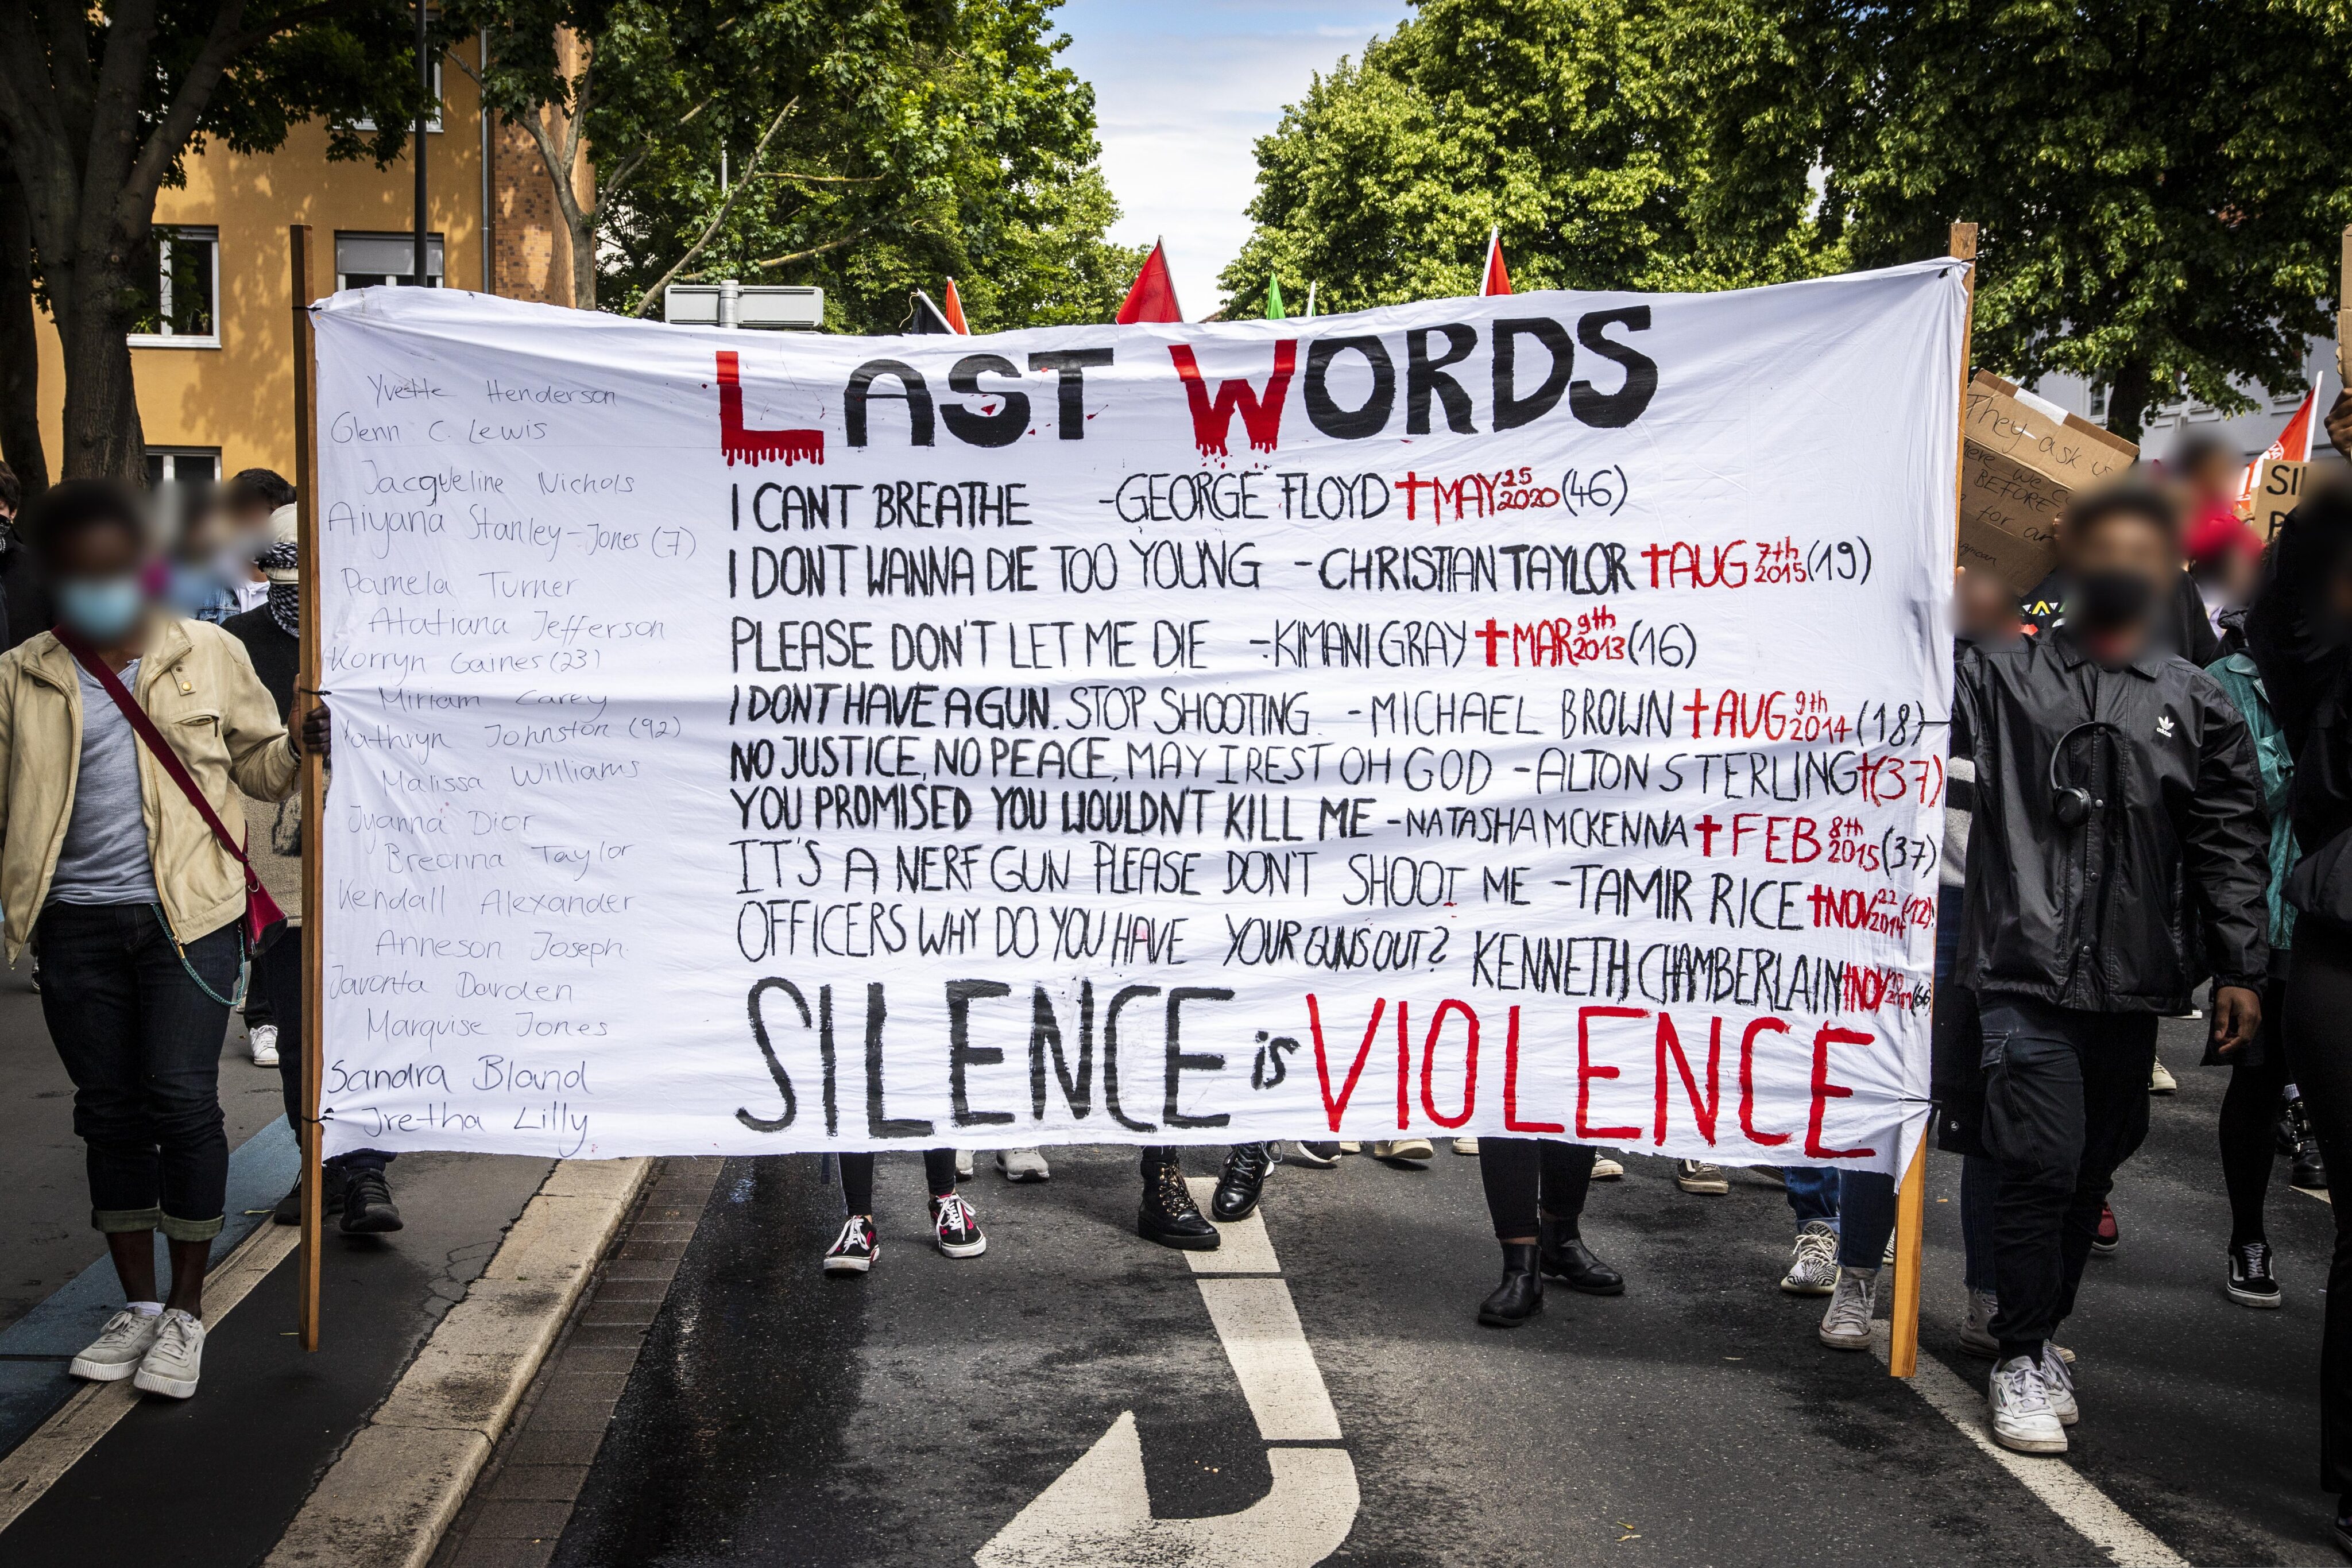 LAST WORDS
Yvette Henderson
Glenn C. Lewis
Jacqueline Nichols
Aiyana Stanley-Jones (7)
Pamela Turner
Atatiana Jefferson
Korryn Gaines (23)
Miriam Carey
Kathryn Johnston (92)
Malissa Williams
Iyanna Dior
Breonna Taylor
Kendall Alexander
Anneson Joseph
Javonta Darden
Marquise Jones
Sandra Bland
Iretha Lilly
I CANT BREATHE -GEORGE FLOYD ✝MAY 25 2020 (46)
I DONT WANNA DIE TOO YOUNG -CHRISTIAN TAYLOR ✝AUG 7th 2015 (19)
PLEASE DON'T LET ME DIE -KIMANI GRAY ✝MAR 9th 2013 (16)
I DONT HAVE A GUN. STOP SHOOTING. -MICHAEL BROWN ✝AUG 9th 2014 (18)
NO JUSTICE, NO PEACE, MAY I REST OH GOD -ALTON STERLING ✝(37)
YOU PROMISED YOU WOULDN'T KILL ME -NATASHA MCKENNA ✝FEB 8th 2015 (37)
IT'S A NERF GUN PLEASE DON'T SHOOT ME -TAMIR RICE ✝NOV 22 2014 (12)
OFFICERS WHY DO YOU HAVE YOUR GUNS OUT? KENNETH CHAMBERLAIN ✝NOV
SILENCE is VIOLENCE
They ask
here we
BEFORE
for
SI
adidas